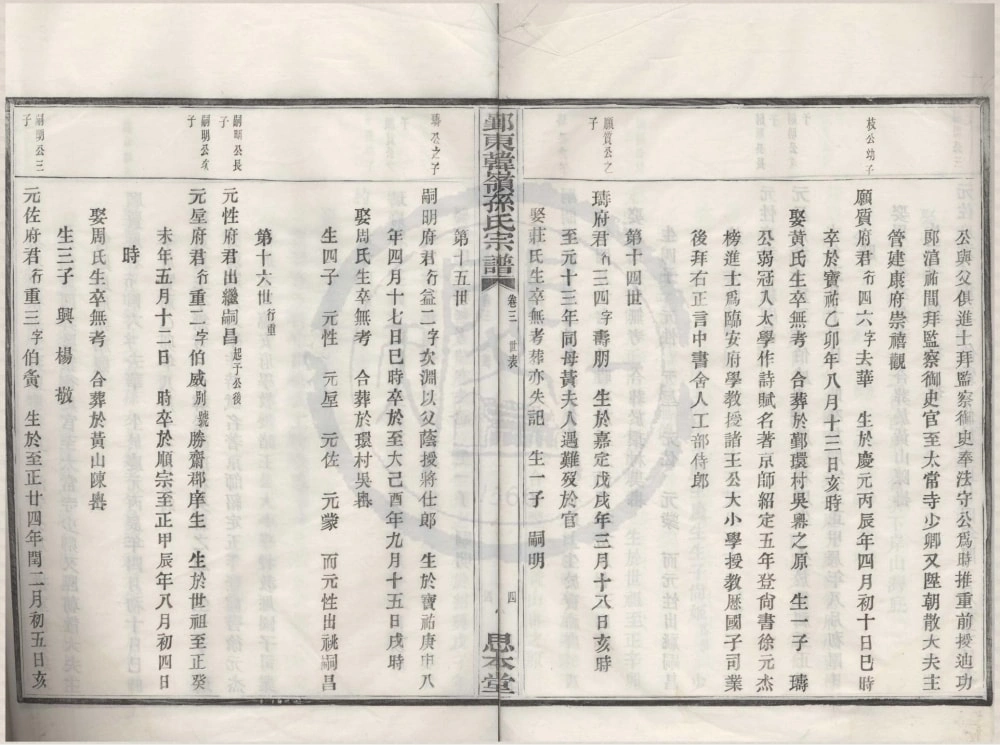 公與父俱進士拜監察御史奉法守公爲時推重前授迪功
郎淳祐間拜監察御史官至太常寺少卿又陞朝散大夫主
管建康府崇禧觀
枝公幼子
願質府君行四六字去華 生於慶元丙辰年四月初十日巳時
卒於寶祐乙卯年八月十三日亥時
娶黃氏生卒無考 合葬於鄞環村吳嶴之原 生一子 璹
公弱冠入太學作詩賦名著京師紹定五年登尙書徐元杰
榜進士爲臨安府學教授諸王公大小學授教歷國子司業
後拜右正言中書舍人工部侍郎
第十四世
願質公之子
璹府君行三四字壽朋 生於嘉定戊戌年三月十八日亥時
至元十三年同母黃夫人遇難歿於官
娶莊氏生卒無考葬亦失記 生一子 嗣明
鄞東韓嶺孫氏宗譜 卷三 世表 四 思本堂
第十五世
璹公之子
嗣明府君行益二字次淵以父蔭授將仕郎 生於寶祐庚申八
年四月十七日巳時卒於至大己酉年九月十五日戌時
娶周氏生卒無考 合葬於環村吳嶴
生四子 元性 元屋 元佐 元蒙 而元性出祧嗣昌
第十六世行重
嗣明公長子
元性府君出繼嗣昌起予公後
嗣明公次子
元屋府君行重二字伯威別號勝齋郡庠生 生於世祖至正癸
未年五月十二日 時卒於順宗至正甲辰年八月初四日
時
娶周氏生卒無考 合葬於黃山陳嶴
生三子 興 楊 敬
嗣明公三子
元佐府君行重三字伯 生於至正廿四年閏二月初五日亥